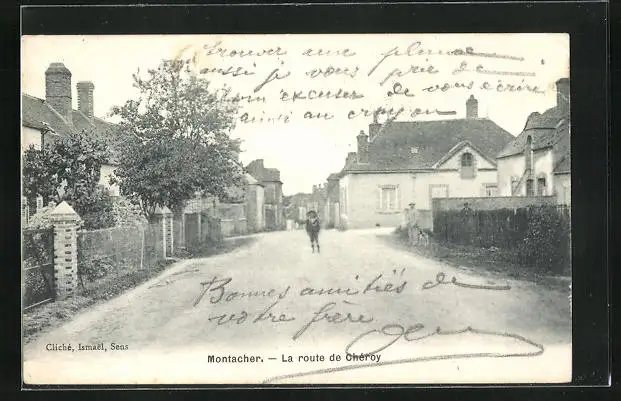 trouver une plume
aussi je vous prie de
m'excuser de vous écrire
ainsi au crayon
Bonnes amitiés de
votre frère
Cliché, Ismaël, Sens
Montacher. — La route de Chéroy